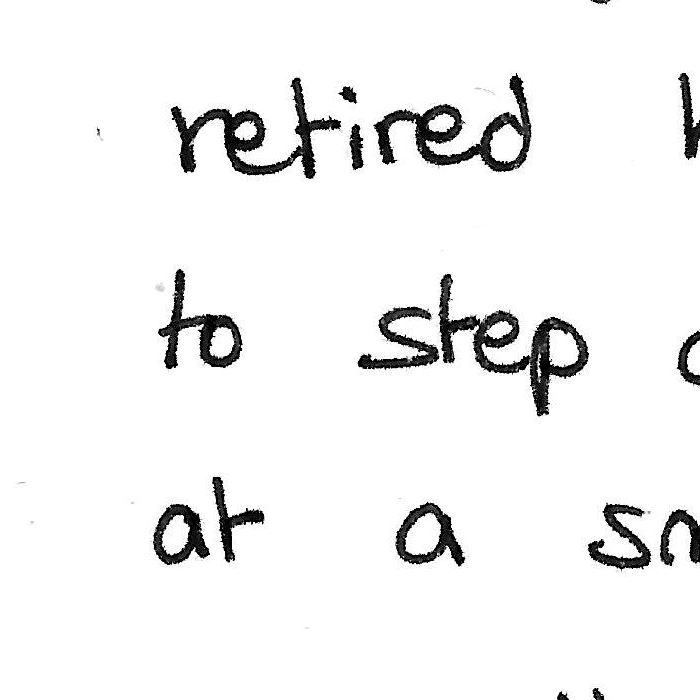 retired
to step
at a